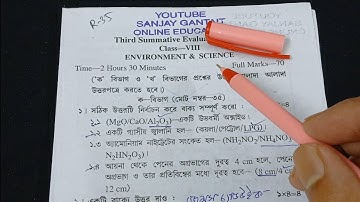 R-35
YOUTUBE
SANJAY GANTAIT
ONLINE EDUCA
Third Summative Evalua
Class—VIII
ENVIRONMENT & SCIENCE
Time—2 Hours 30 Minutes Full Marks—70
('ক' বিভাগ ও 'খ' বিভাগের প্রশ্নের উত্তর আলাদা
উত্তরপত্রে করতে হবে।)
ক—বিভাগ (মোট নম্বর—৩৫)
১। সঠিক উত্তরটি নির্বাচন করে বাক্য সম্পূর্ণ করো : ১×৪=৪
১.১ (MgO/CaO/Al₂O₃) একটি উভধর্মী অক্সাইড।
১.২ একটি গ্যাসীয় জ্বালানি হল— (কয়লা/পেট্রোল/LPG)
১.৩ অ্যামোনিয়াম নাইট্রেটের সংকেত হল— (NH₂NO₂/NH₄NO₃/
N₂H₂O₃)।
১.৪ আয়না থেকে পেনের অগ্রভাগের দূরত্ব 4 cm হলে, পেনের
অগ্রভাগ ও তার প্রতিবিম্বের মধ্যে দূরত্ব হবে— (8 cm/4
12 cm)
একটি বাক্যে উত্তর দাও : ১×৪=৪